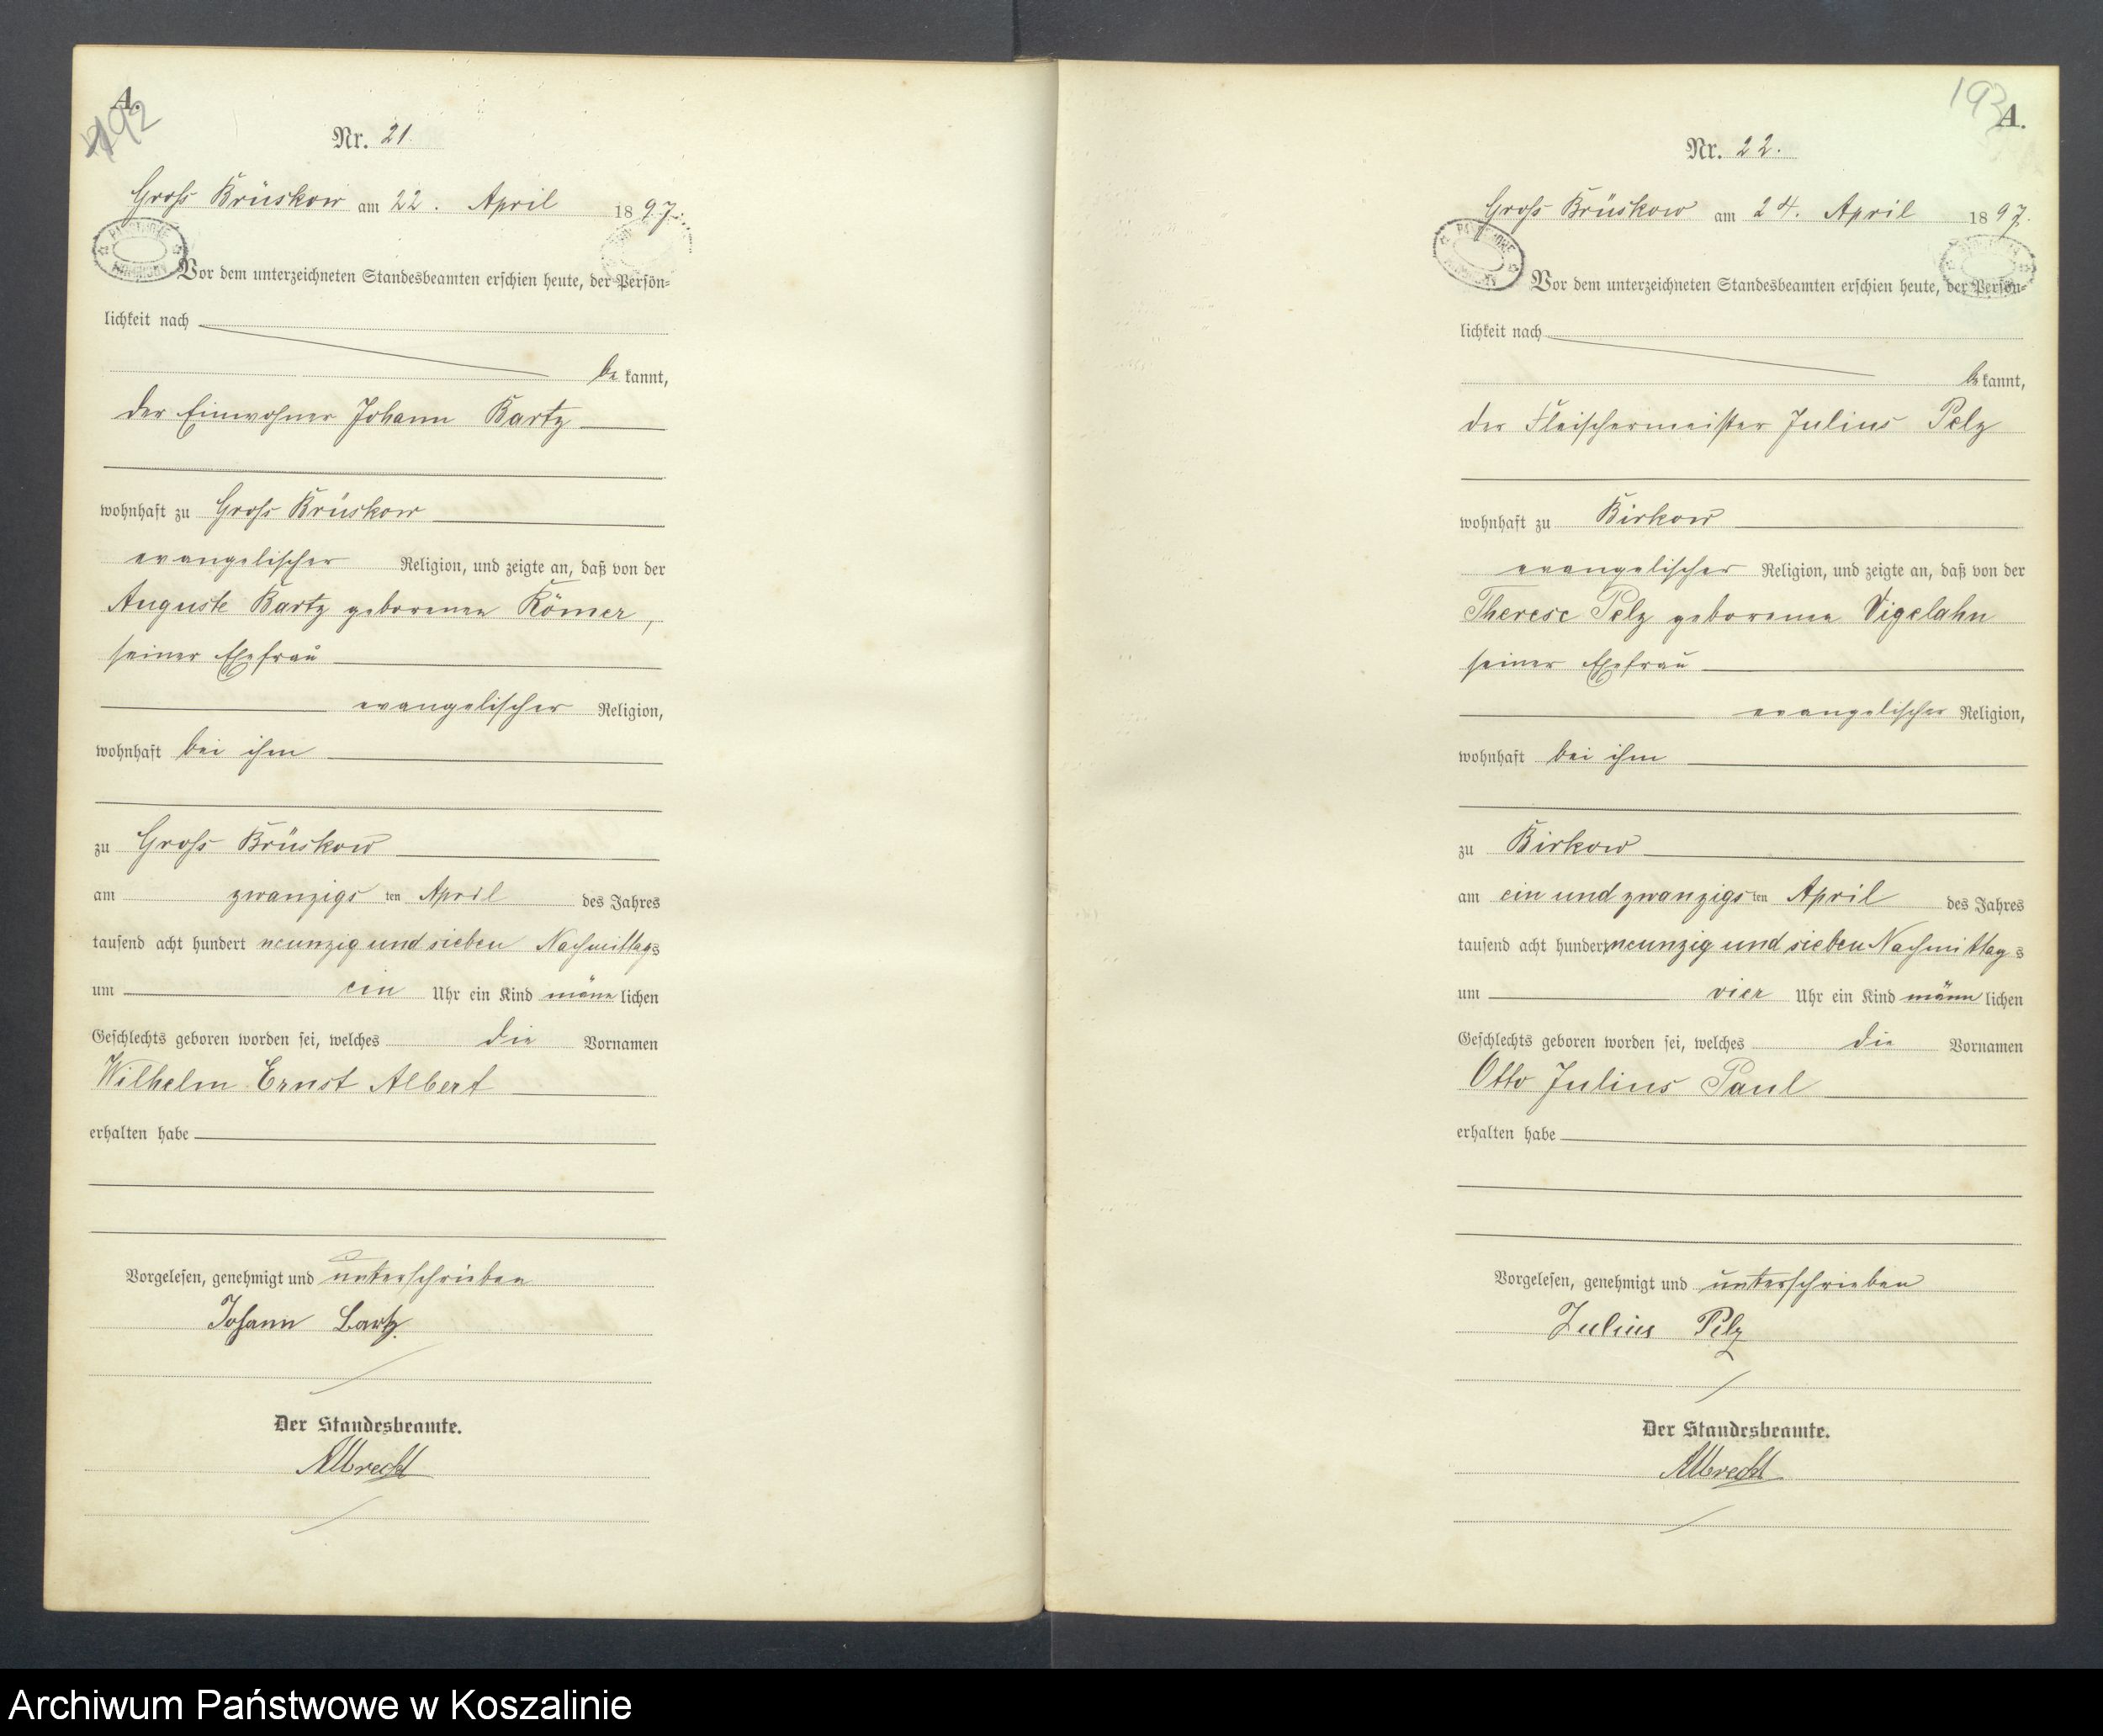 A.
192
Nr. 21.
Groß Brüskow am 22. April 1897.
Vor dem unterzeichneten Standesbeamten erschien heute, der Persön-
lichkeit nach
be kannt,
der Einwohner Johann Bartz
wohnhaft zu Groß Brüskow
evangelischer Religion, und zeigte an, daß von der
Auguste Bartz geborenen Römer,
seiner Ehefrau
evangelischer Religion,
wohnhaft bei ihm
zu Groß Brüskow
am zwanzigs ten April des Jahres
tausend acht hundert neunzig und sieben Nachmittags
um ein Uhr ein Kind männ lichen
Geschlechts geboren worden sei, welches die Vornamen
Wilhelm Ernst Albert
erhalten habe
Vorgelesen, genehmigt und unterschrieben
Johann Bartz.
Der Standesbeamte.
Albrecht
193
A.
Nr. 22.
Groß Brüskow am 24. April 1897.
Vor dem unterzeichneten Standesbeamten erschien heute, der Persön-
lichkeit nach
be kannt,
der Fleischermeister Julius Pelz
wohnhaft zu Birkow
evangelischer Religion, und zeigte an, daß von der
Therese Pelz geborene Vigelahn
seiner Ehefrau
evangelischer Religion,
wohnhaft bei ihm
zu Birkow
am ein und zwanzigs ten April des Jahres
tausend acht hundert neunzig und sieben Nachmittag s
um vier Uhr ein Kind männ lichen
Geschlechts geboren worden sei, welches die Vornamen
Otto Julius Paul
erhalten habe
Vorgelesen, genehmigt und unterschrieben
Julius Pelz
Der Standesbeamte.
Albrecht
Archiwum Państwowe w Koszalinie